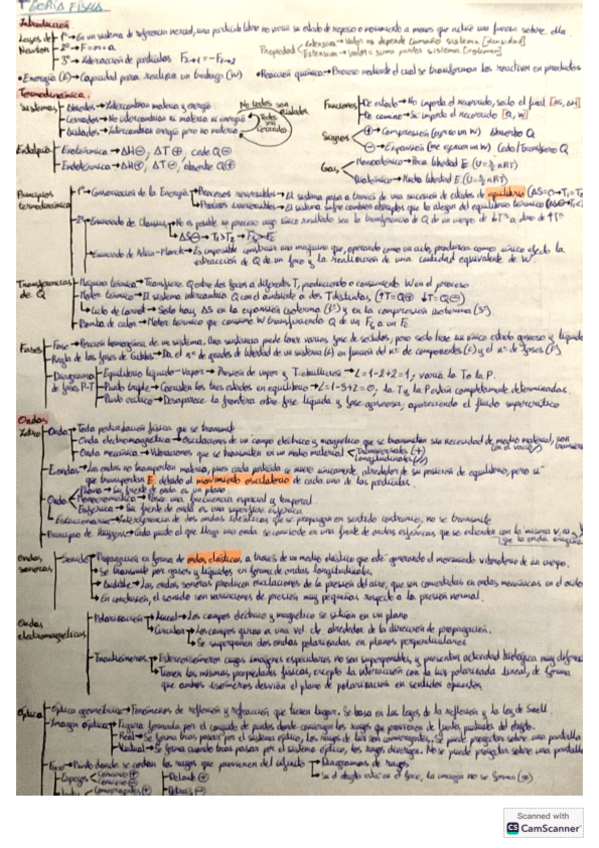 TEORÍA FÍSICA
Introducción
Leyes de Newton
1ª→En un sistema de referencia inercial, una partícula libre no varía su estado de reposo o movimiento a menos que actúe una fuerza sobre ella.
2ª→F=m·a
3ª→Interacción de partículas F₂→₁=-F₁→₂
Propiedad
Intensiva→Valor no depende tamaño sistema [densidad]
Extensiva→Valor= suma partes sistema [volumen]
•Energía (E)→Capacidad para realizar un trabajo (W)
•Reacción química→Proceso mediante el cual se transforman los reactivos en productos
Termodinámica
Sistemas
Abiertos→Intercambian materia y energía
Cerrados→No intercambian ni materia ni energía
Aislados→Intercambian energía pero no materia
No todos son aislados
Todos son cerrados
Funciones
De estado→No importa el recorrido, solo el final [ΔS, ΔH]
De camino→Sí importa el recorrido [Q, W]
Signos
⊕→Compresión (ejerzo un W) Absorbo Q
⊖→Expansión (me ejercen W) Cedo/Transfiero Q
Entalpía
Exotérmica→ΔH⊖, ΔT⊕, cede Q⊖
Endotérmica→ΔH⊕, ΔT⊖, absorbe Q⊕
Gas
Monoatómico→Poca libertad E
Diatómico→Mucha libertad E
Principios termodinámica
1ª→Conservación de la Energía
Procesos reversibles→El sistema pasa a través de una sucesión de estados de equilibrio
Procesos irreversibles→El sistema sufre cambios abruptos que lo alejan del equilibrio térmico
2ª
Enunciado de Clausius→No es posible un proceso cuyo único resultado sea la transferencia de Q de un cuerpo de ↓Tª a otro de ↑Tª
Enunciado de Kelvin-Planck→Es imposible construir una máquina que, operando como un ciclo, produzca como único efecto la
extracción de Q de un foco y la realización de una cantidad equivalente de W
Transferencias de Q
Máquina térmica→Transfiere Q entre dos focos a diferentes T, produciendo o consumiendo W en el proceso
Motor térmico→El sistema intercambia Q con el ambiente a dos T distintas (↑T=Q⊕ ↓T=Q⊖)
Ciclo de Carnot→Solo hay ΔS en la expansión isoterma (1º) y en la compresión isoterma (3º)
Bomba de calor→Motor térmico que consume W transfiriendo Q de un
Fases
Fase→Porción homogénea de un sistema. Una sustancia puede tener varias fases sólidas, pero solo tiene un único estado gaseoso y líquido
Regla de las fases de Gibbs→Da el nº de grados de libertad de un sistema (L) en función del nº de componentes (C) y el nº de fases (F)
Diagramas de fases P-T
Equilibrio líquido-Vapor→Presión de vapor y T ebullición→L=1-2+2=1, varía la T o la P.
Punto triple→Coexisten los tres estados en equilibrio→L=1-3+2=0, la T y la P están completamente determinadas.
Punto crítico→Desaparece la frontera entre fase líquida y fase gaseosa, apareciendo el fluido supercrítico
Ondas
Onda→Toda perturbación física que se transmite
Onda electromagnética→Oscilaciones de un campo eléctrico y magnético que se transmiten sin necesidad de medio material, son
Onda mecánica→Vibraciones que se transmiten en un medio material
Transversales
Longitudinales
E ondas→Las ondas no transportan materia, pues cada partícula se mueve únicamente alrededor de su posición de equilibrio, pero sí
que transportan E debido al movimiento oscilatorio de cada una de las partículas.
Onda
Plana→Su frente de onda es un plano
Monocromática→Posee una frecuencia espacial y temporal
Esférica→Su frente de onda es una superficie esférica
Estacionaria→Interferencia de dos ondas idénticas que se propagan en sentido contrario, no se transmite
Principio de Huygens→Cada punto al que llega una onda se convierte en una frente de ondas esféricas que se extienden con la misma
que la onda original
Ondas sonoras
Sonido
Propagación en forma de ondas elásticas a través de un medio elástico que esté generando el movimiento vibratorio de un cuerpo.
Se transmite por gases y líquidos en forma de ondas longitudinales.
Audible→Las ondas sonoras producen oscilaciones de la presión del aire, que son convertidas en ondas mecánicas en el oído
En conclusión, el sonido son variaciones de presión muy pequeñas respecto a la presión normal.
Ondas electromagnéticas
Polarización
Lineal→Los campos eléctrico y magnético se sitúan en un plano
Circular→Los campos giran a una vel. cte alrededor de la dirección de propagación.
Se superponen dos ondas polarizadas en planos perpendiculares
Enantiómeros
Estereoisómeros cuyas imágenes especulares no son superponibles y presentan actividad biológica muy diferen
Tienen las mismas propiedades físicas, excepto la interacción con la luz polarizada lineal, de forma
que ambos isómeros desvían el plano de polarización en sentidos opuestos
Óptica
Óptica geométrica→Fenómenos de reflexión y refracción que tienen lugar. Se basa en las leyes de la reflexión y la ley de Snell.
Imagen óptica
Figura formada por el conjunto de puntos donde convergen los rayos que provienen de fuentes puntuales del objeto.
Real→Se forma tras pasar por el sistema óptico, los rayos de luz son convergentes. Se puede proyectar sobre una pantalla
Virtual→Se forma cuando tras pasar por el sistema óptico, los rayos divergen. No se puede proyectar sobre una pantalla
Foco→Punto donde se cortan los rayos que provienen del infinito
Diagramas de rayos
Si el objeto está en el foco, la imagen no se forma (∞)
Espejos
Cóncavo⊕
Convexo⊖
Delante⊕
Detrás⊖
Scanned with
CS CamScanner